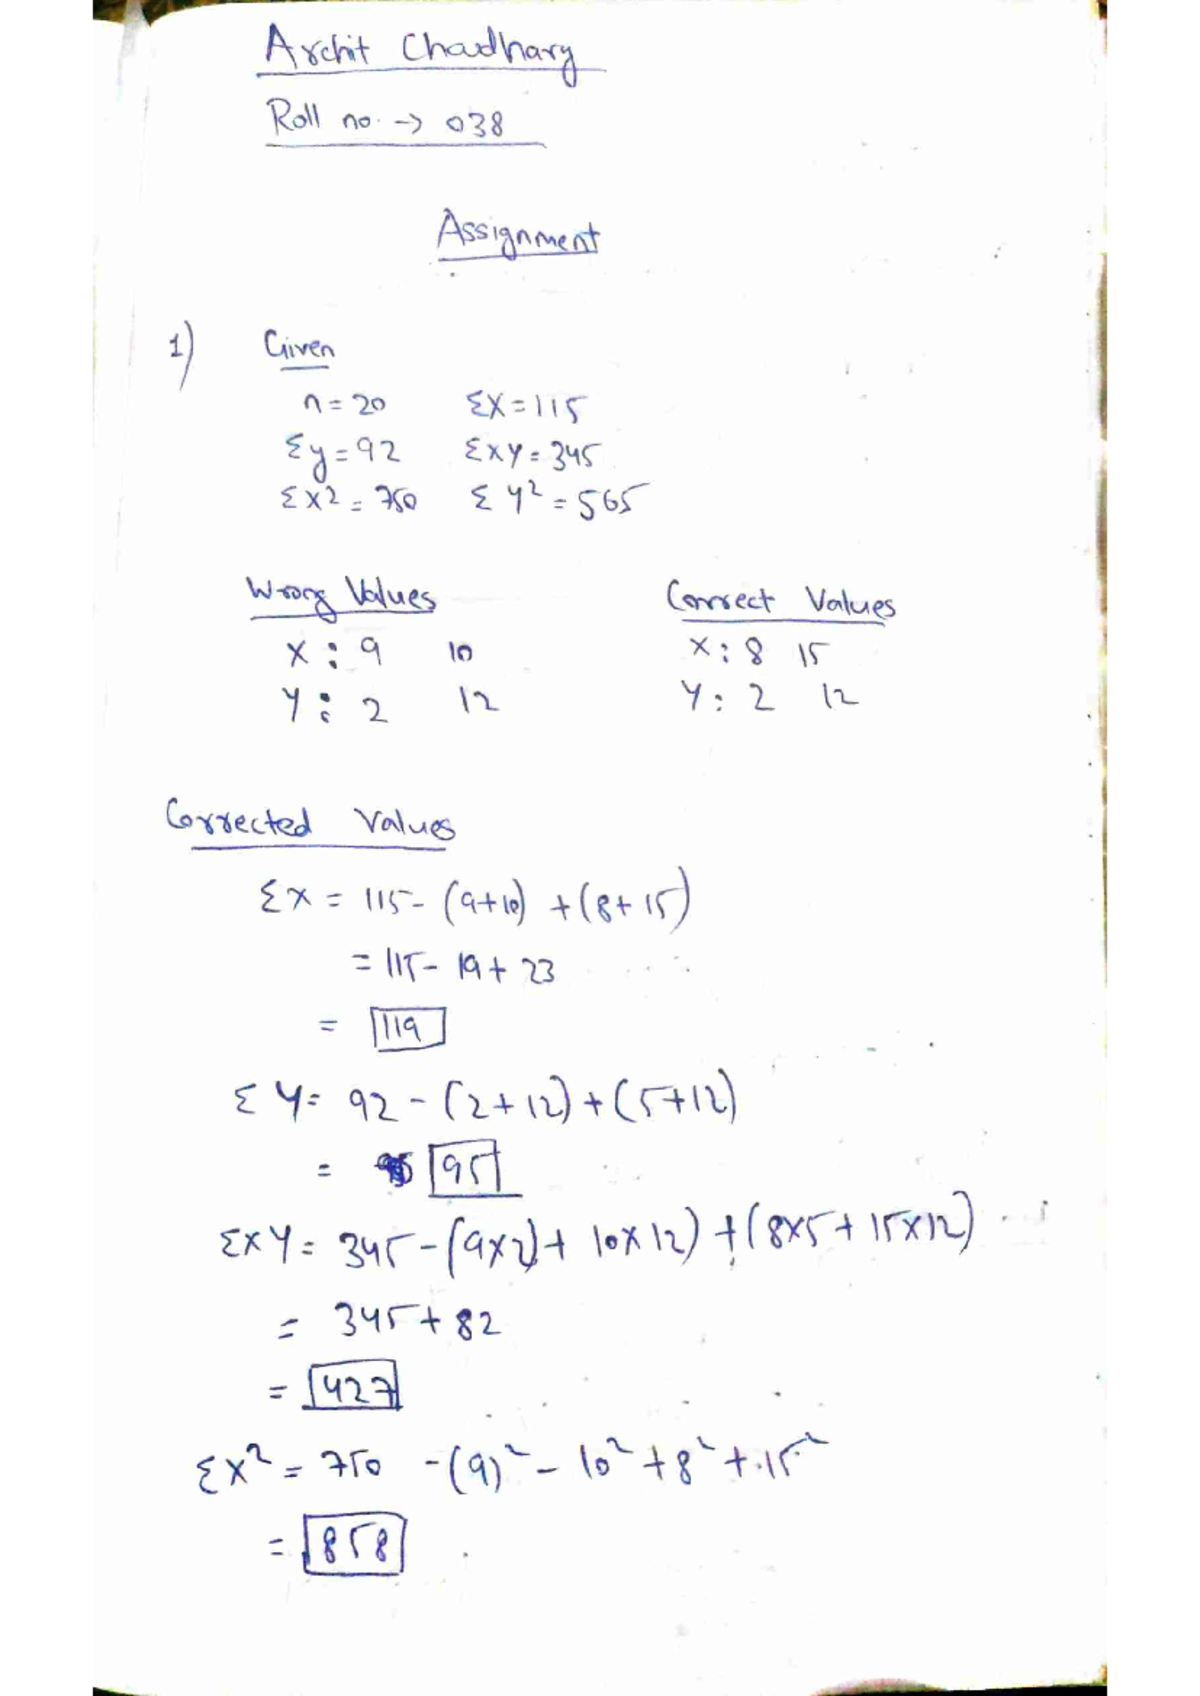 Archit Chaudhary
Roll no. → 038
Assignment
1) Given
n = 20 ΣX = 115
Σy = 92 ΣXY = 345
ΣX2 = 750 ΣY² = 565
Wrong Values Correct Values
X : 9 10 X : 8 15
Y : 2 12 Y : 2 12
Corrected Values
ΣX = 115 - (9+10) + (8+15)
= 115 - 19 + 23
= 119
ΣY = 92 - (2+12) + (5+12)
= 95
ΣXY = 345 - (9x2) + 10x12) + (8x5 + 15x12)
= 345 + 82
= 427
ΣX² = 750 - (9)² - 10² + 8² + 15²
= 858